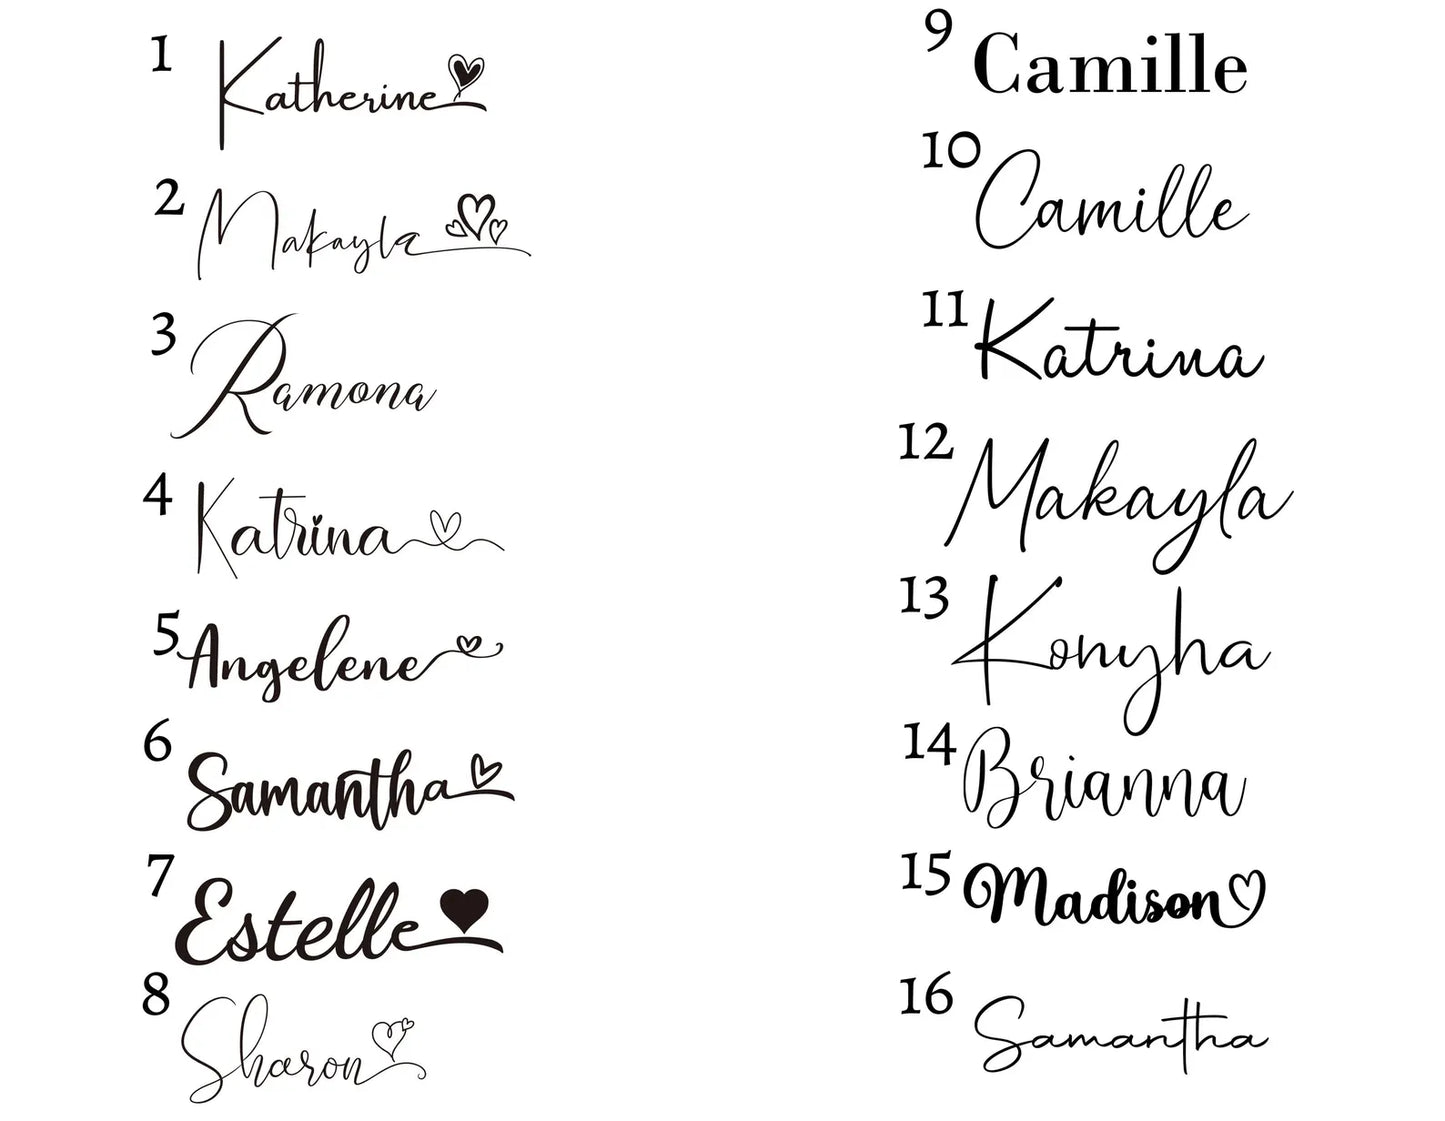 1 Katherine
2 Makayla
3 Ramona
4 Katrina
5 Angelene
6 Samantha
7 Estelle
8 Sharon
9 Camille
10 Camille
11 Katrina
12 Makayla
13 Konyha
14 Brianna
15 Madison
16 Samantha